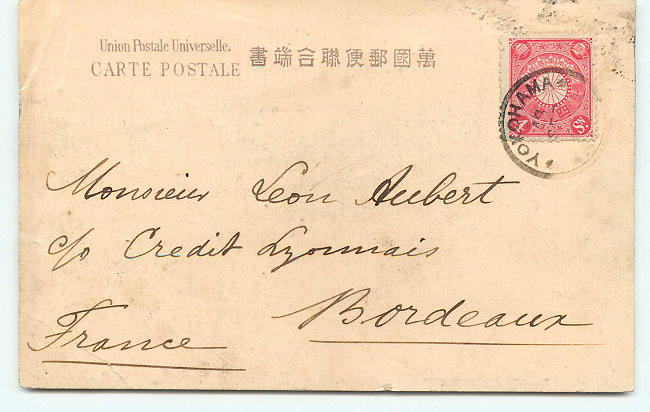 Union Postale Universelle.
CARTE POSTALE
書端合聯便郵國萬
YOKOHAMA
Monsieur Leon Aubert
c/o Credit Lyonnais
Bordeaux
France